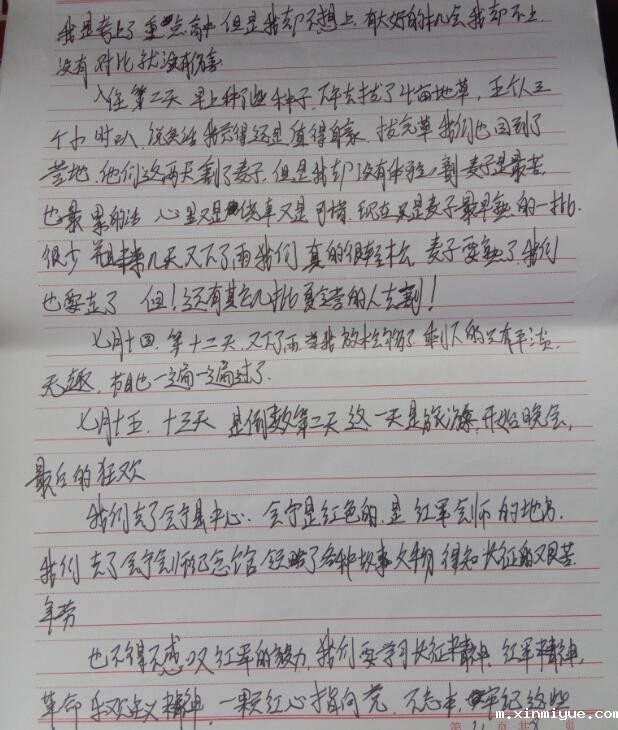 我是考上了重点高中但是我却不想上,有大好的机会我却不上
没有对比就没有伤害
入住第二天 早上种了些种子,下午去拔了4亩地草,五个人三
个小时从,说实话我觉得还是值得自豪,拔完草我们也回到了
营地.他们这两天割了麦子,但是我却没有体验,割麦子是最苦
也最累的活 心里又是侥幸又是可惜.现在只是麦子最早熟的一批
很少 未来几天又下了雨我们真的很轻松,麦子要熟了我们
也要走了 但!还有其它几批夏令营的人去割!
七月十四,第十二天,又下了雨,当我放松够了,剩下的只有平淡
无趣,节目也一遍一遍过了.
七月十五.十三天 是倒数第二天 这一天是 开始晚会,
最后的狂欢
我们去了会宁县中心.会宁是红色的,是红军会师的地方.
我们去了会宁会师纪念馆 领略了各种故事文物 得知长征的艰苦
辛劳
也不得不感叹红军的毅力,我们要学习长征精神,红军精神,
革命乐观主义精神,一颗红心指向党,不忘本,牢记这些
第 页 共 页
m.xinmiyue.com